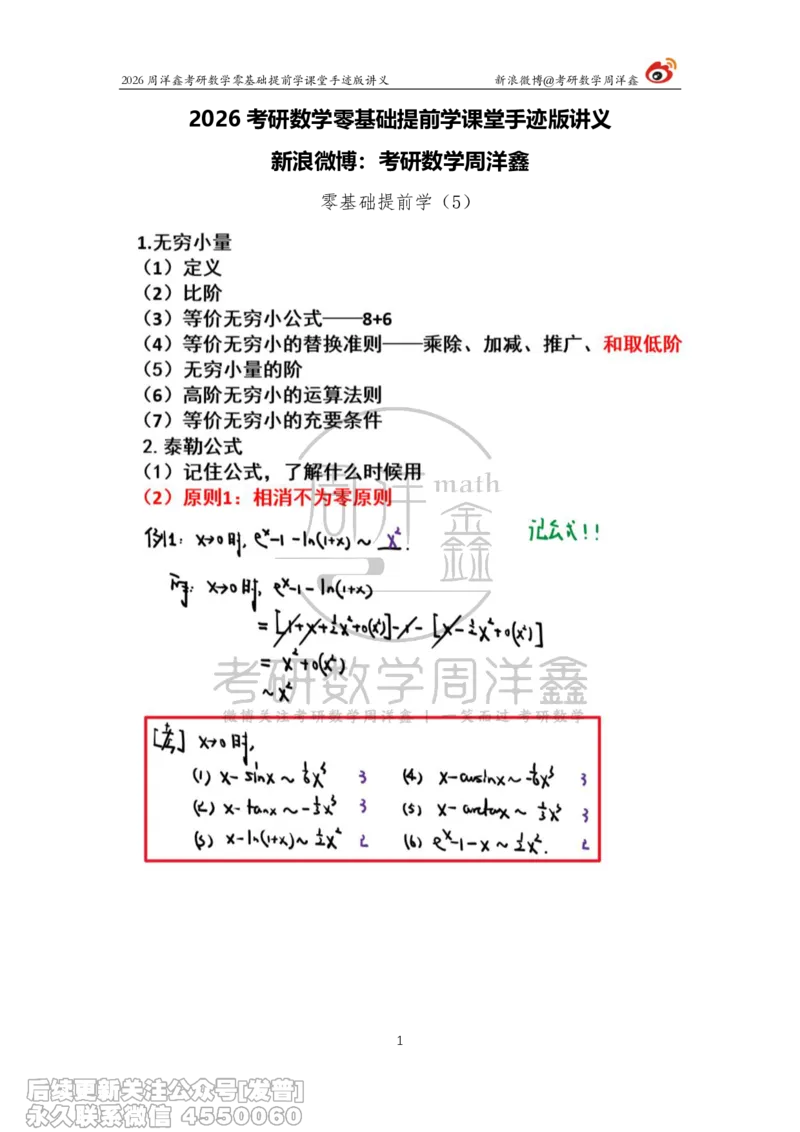 2026 周洋鑫考研数学零基础提前学课堂手迹版讲义 新浪微博@考研数学周洋鑫
2026 考研数学零基础提前学课堂手迹版讲义
新浪微博：考研数学周洋鑫
零基础提前学（5）
1.无穷小量
（1）定义
（2）比阶
（3）等价无穷小公式——8+6
（4）等价无穷小的替换准则——乘除、加减、推广、和取低阶
（5）无穷小量的阶
（6）高阶无穷小的运算法则
（7）等价无穷小的充要条件
2. 泰勒公式
（1）记住公式，了解什么时候用
（2）原则1：相消不为零原则
周洋鑫 math
例1: x→0时, e^x-1-ln(1+x) ~ x². 记公式!!
x→0时, e^x-1-ln(1+x)
= [1+x+½x²+o(x²)]-1-[x-½x²+o(x²)]
= x²+o(x²)
~x²
考研数学周洋鑫
微博关注考研数学周洋鑫 | 一笑而过 考研数学
x→0时,
(1) x-sinx ~ 1/6x³ 3 (4) x-arcsinx ~ -1/6x³ 3
(2) x-tanx ~ -1/3x³ 3 (5) x-arctanx ~ 1/3x³ 3
(3) x-ln(1+x) ~ ½x² 2 (6) e^x-1-x ~ ½x². 2
1
后续更新关注公众号[发普]
永久联系微信 4550060